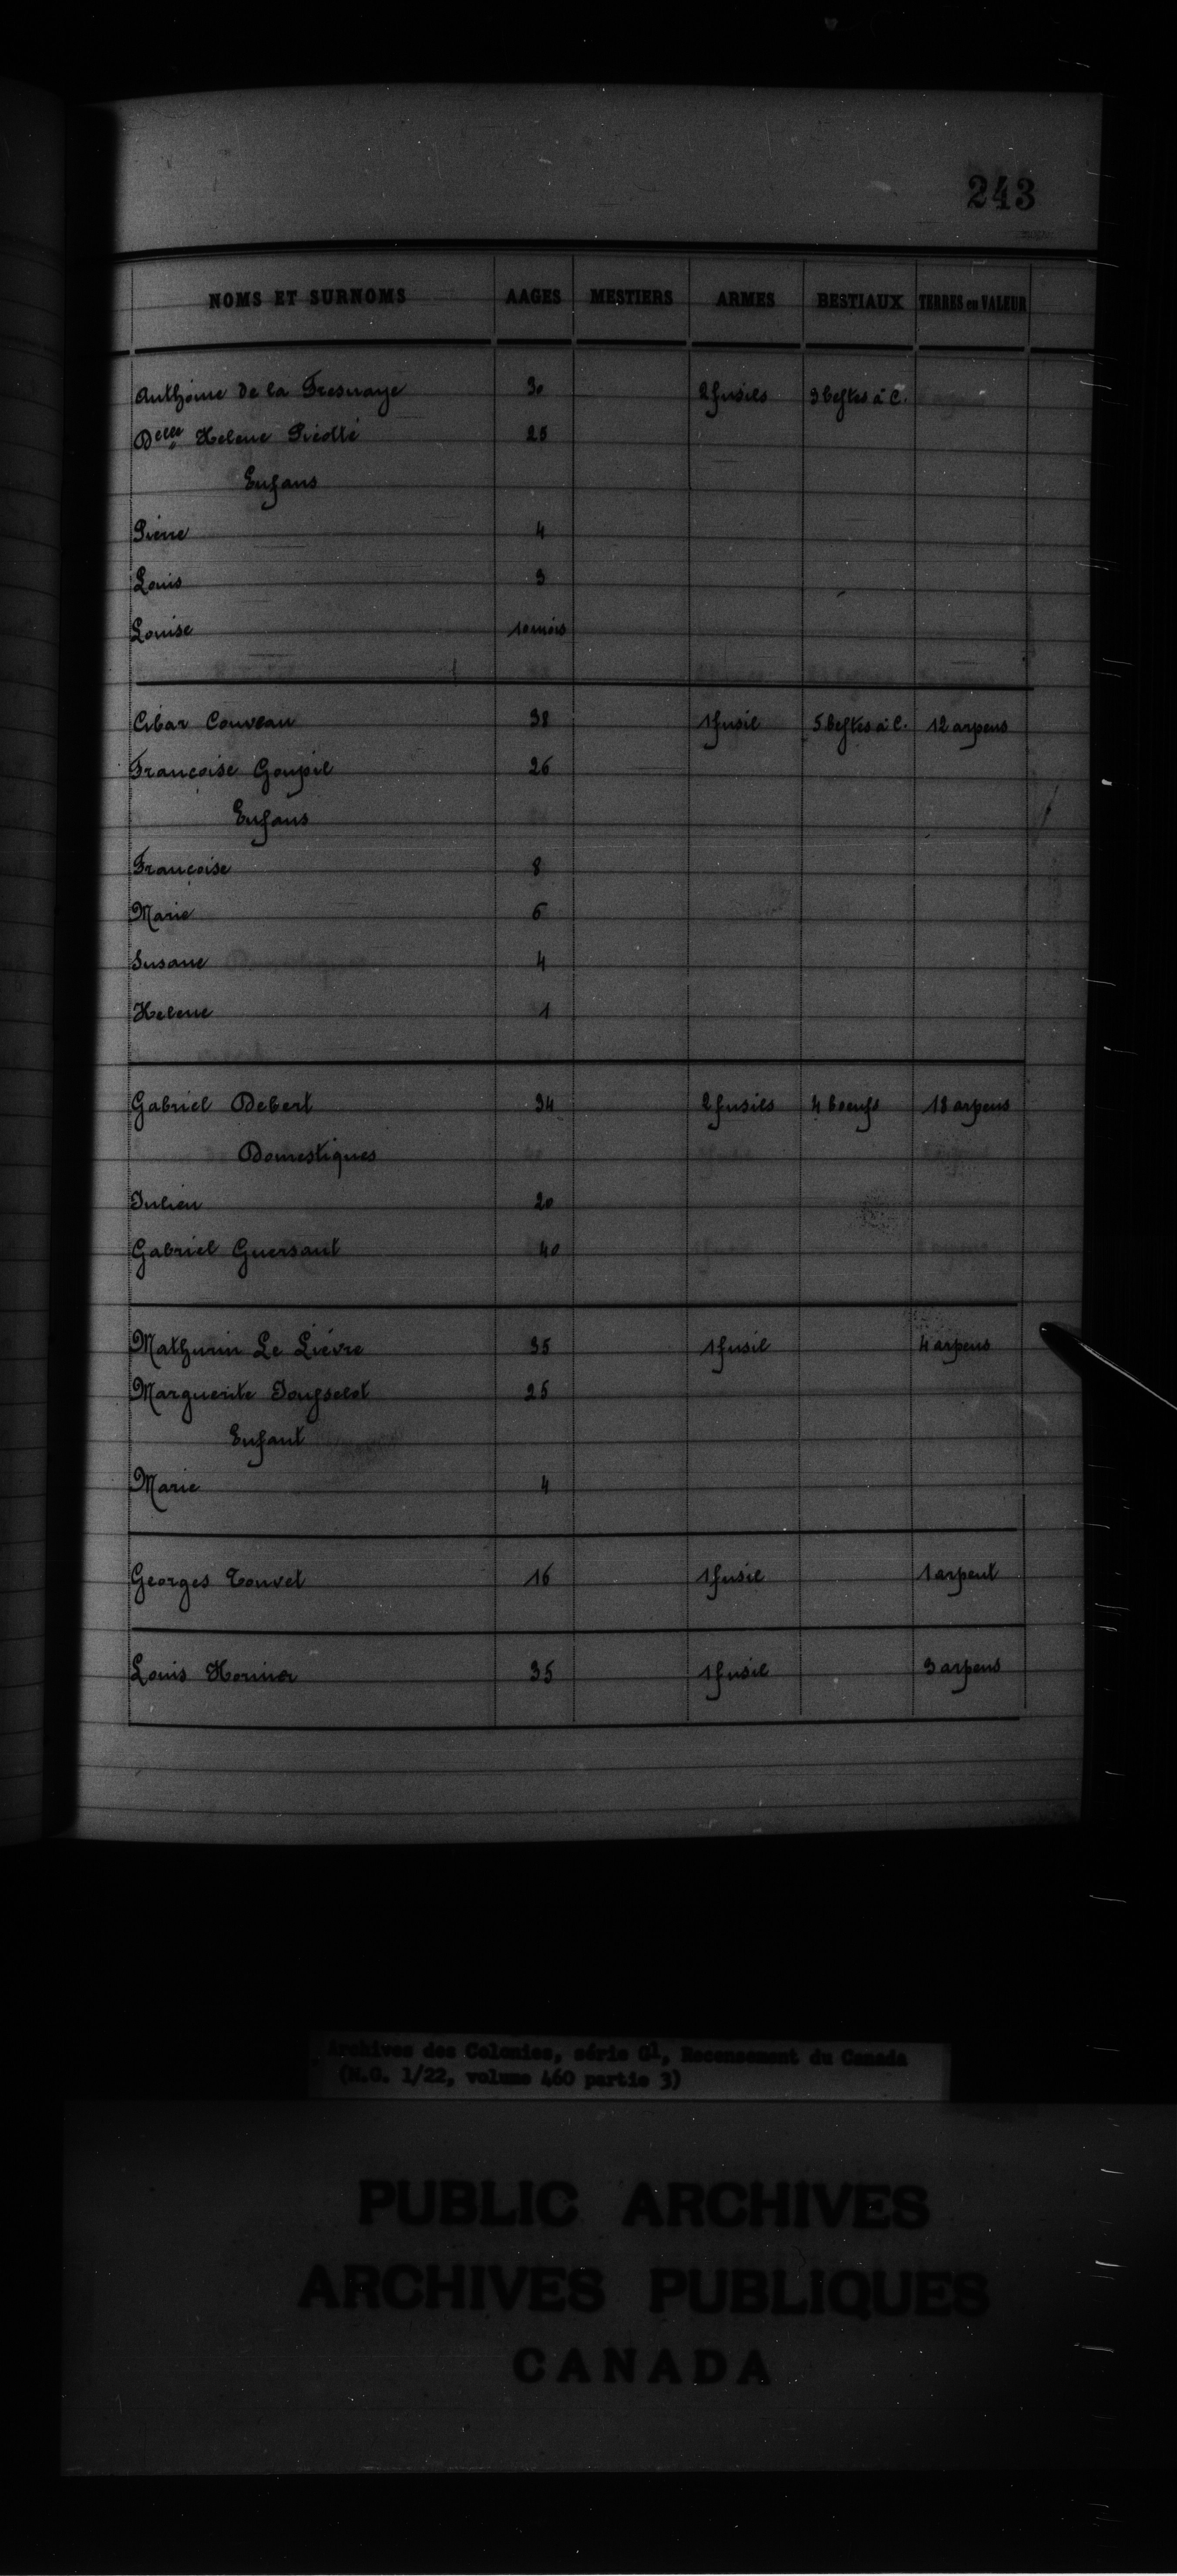 243
NOMS ET SURNOMS AAGES MESTIERS ARMES BESTIAUX TERRES en VALEUR
Anthoine de la Fresnaye 30 2 fusils 3 bestes à C.
Delle Helene 25
Enfans
Pierre 4
Louis 3
Louise 10 mois
Cibar Couveau 38 1 fusil 5 bestes à C. 12 arpens
Françoise Goupil 26
Enfans
Françoise 8
Marie 6
Susane 4
Helene 1
Gabriel Debert 34 2 fusils 4 boeufs 18 arpens
Domestiques
Julien 20
Gabriel Guersant 40
Mathurin Le Lièvre 35 1 fusil 4 arpens
Marguerite Jousselot 25
Enfant
Marie 4
Georges Touvet 16 1 fusil 1 arpent
Louis 35 1 fusil 3 arpens
Archives des Colonies, série G1, Recensement du Canada
(M.G. 1/22, volume 460 partie 3)
PUBLIC ARCHIVES
ARCHIVES PUBLIQUES
CANADA